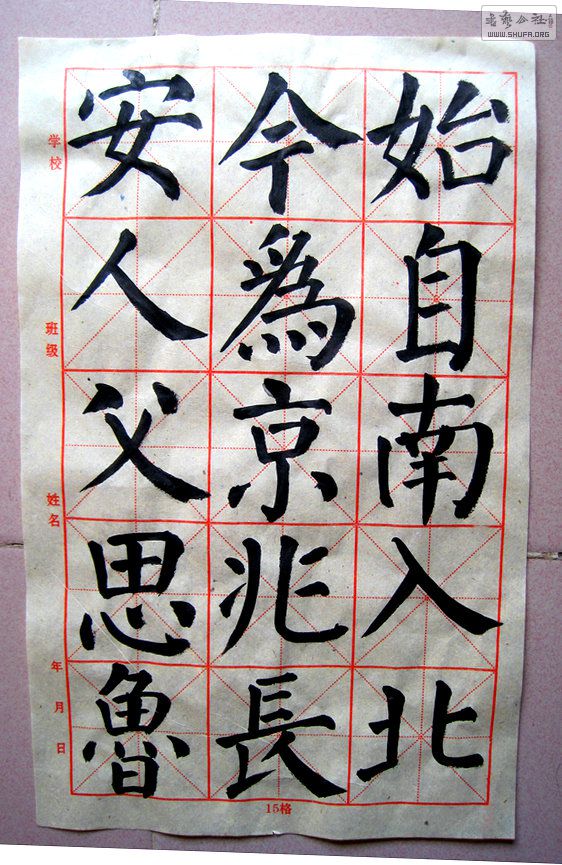 始自南入北
今為京兆長
安人父思魯
学校
班级
姓名
年月日
15格
WWW.SHUFA.ORG